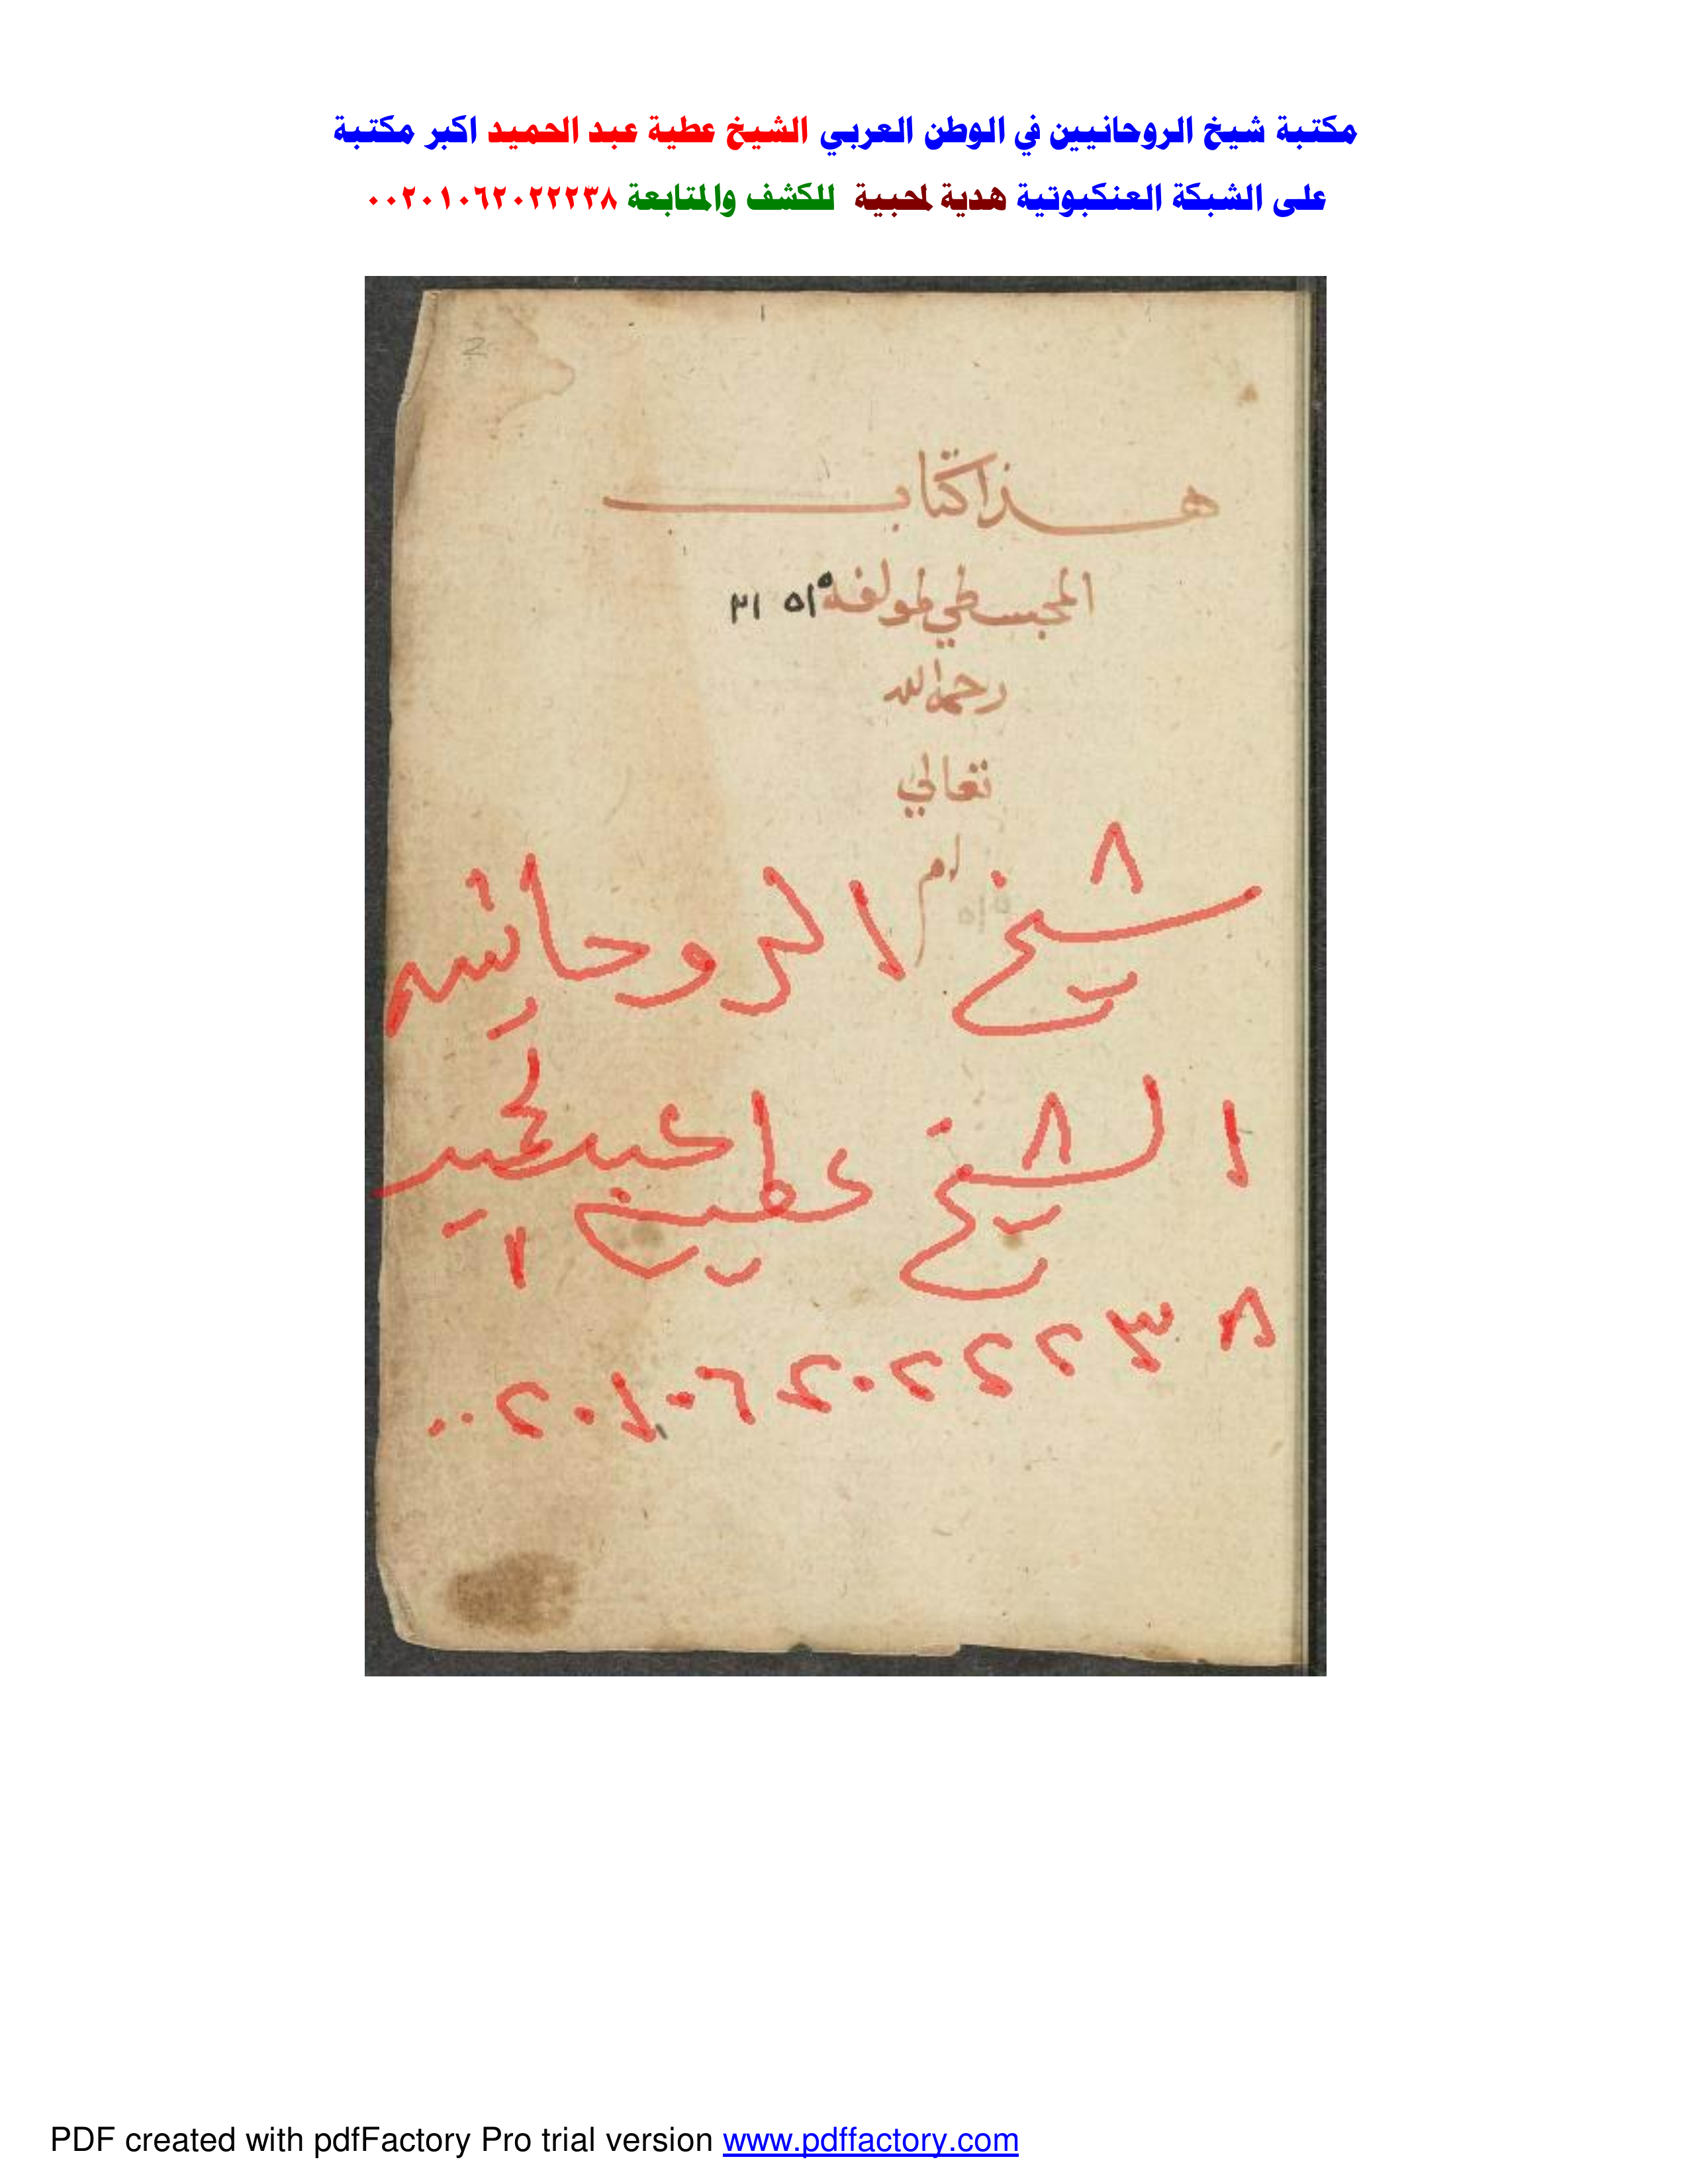 مكتبة شيخ الروحانيين في الوطن العربي الشيخ عطية عبد الحميد اكبر مكتبة
على الشبكة العنكبوتية هدية لمحبية للكشف والمتابعة ٠٠٢٠١٠٦٢٠٢٢٢٣٨
2
هذا كتاب
المجسطي لمولفه
رحمه الله
تعالي
شيخ الروحانين
الشيخ عطية عبد الحميد
٠٠٢٠١٠٦٢٠٢٢٢٣٨
PDF created with pdfFactory Pro trial version www.pdffactory.com